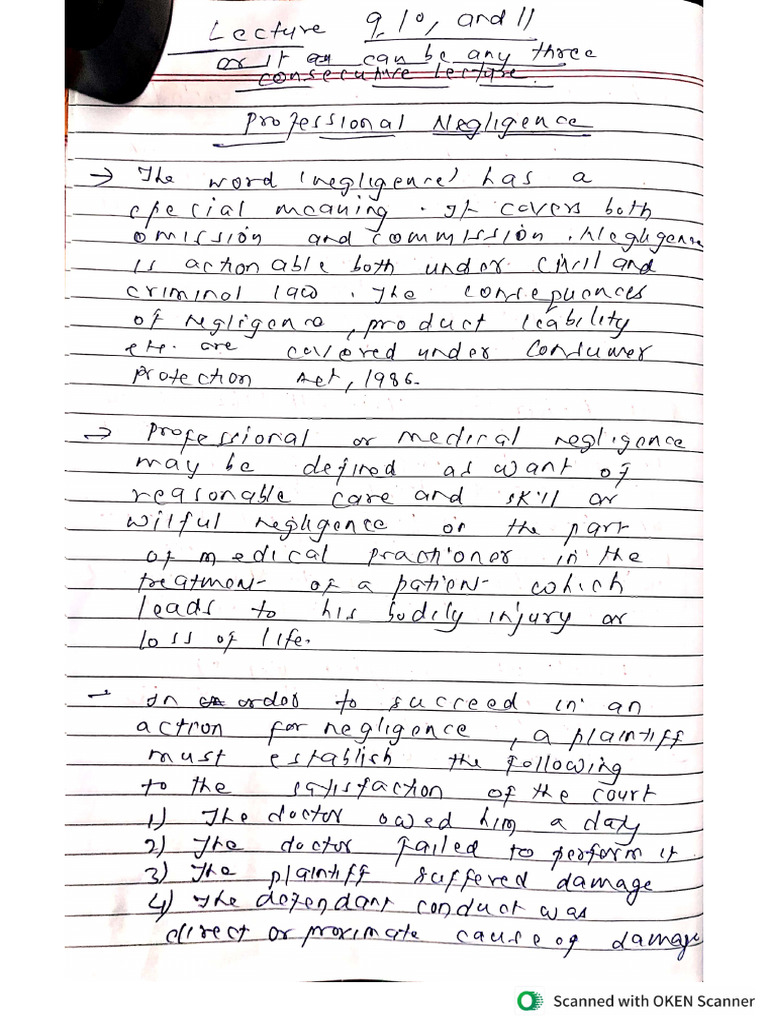 Lecture 9, 10, and 11
or it can be any three
consecutive lecture.
Professional Negligence
→ The word (negligence) has a
special meaning. It covers both
omission and commission. Negligence
is actionable both under civil and
criminal law. The consequences
of negligence, product leability
etc. are covered under Consumer
Protection Act, 1986.
→ Professional or medical negligence
may be defined as want of
reasonable care and skill or
wilful negligence on the part
of medical practioner in the
treatment of a patient which
leads to his bodily injury or
loss of life.
- In order to succeed in an
action for negligence, a plaintiff
must establish the following
to the satisfaction of the court
1) The doctor owed him a duty
2) The doctor failed to perform it
3) The plaintiff suffered damage
4) The defendant conduct was
direct or proximate cause of damage
Scanned with OKEN Scanner